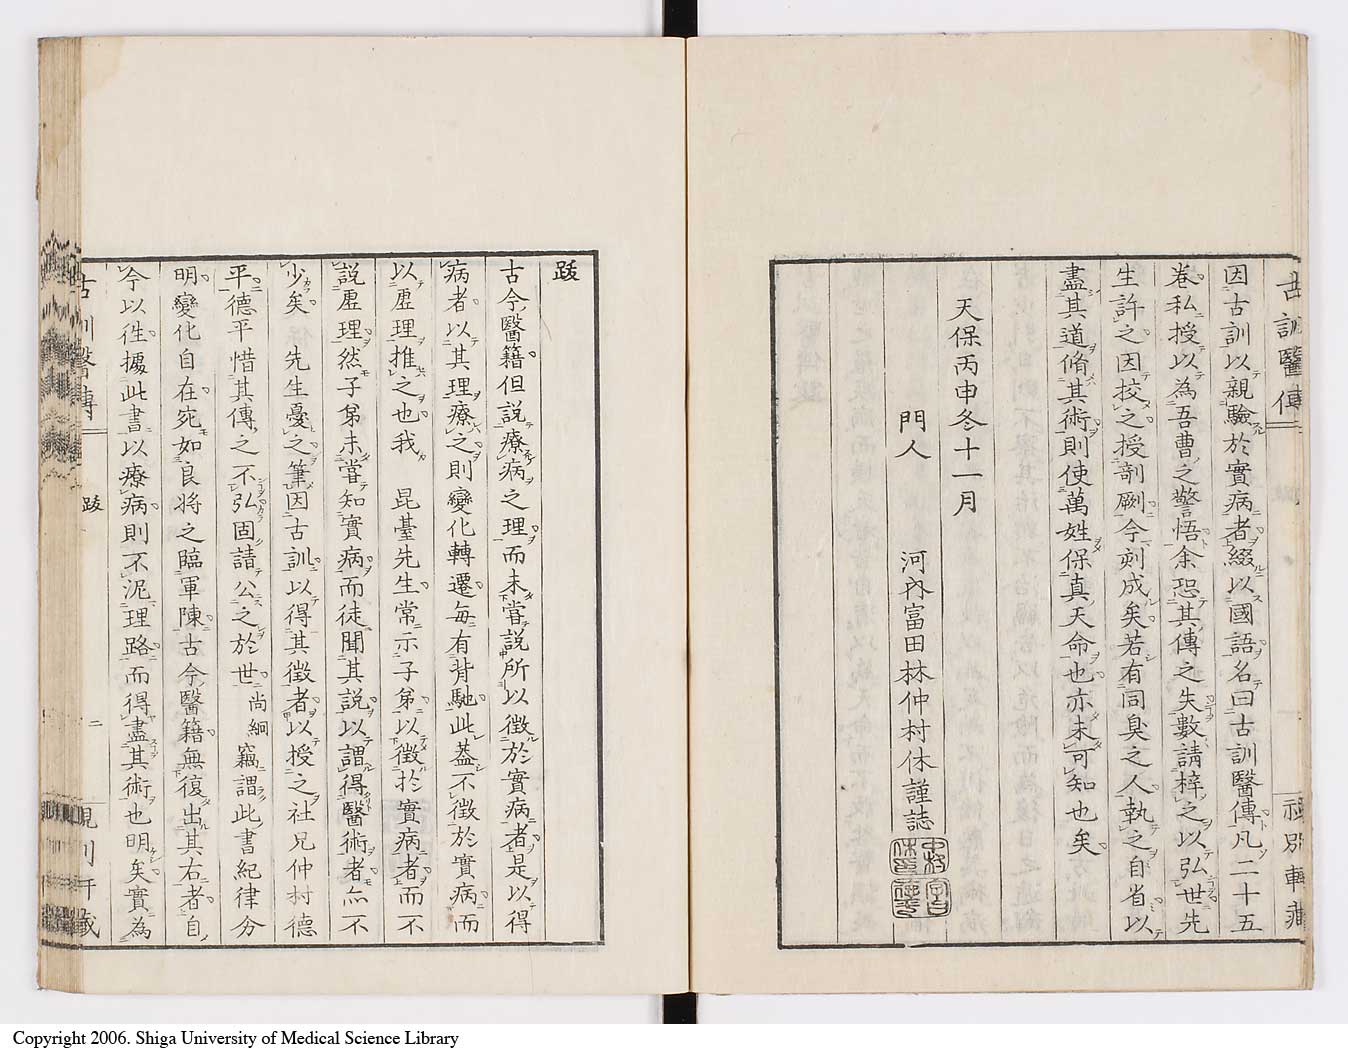 因古訓以親驗於實病者綴以國語名曰古訓醫傳凡二十五
卷私授以為吾曹之警悟余恐其傳之失數請梓之以弘世先
生許之因挍之授剞劂今刻成矣若有同臭之人執之自省以
盡其道脩其術則使萬姓保真天命也亦未可知也矣
天保丙申冬十一月
門人
河內富田林仲村休謹誌
跋
古今醫籍但說療病之理而未嘗說所以徵於實病者是以得
病者以其理療之則變化轉遷每有背馳此葢不徵於實病而
以虛理推之也我 昆臺先生常示子弟以徵於實病者而不
說虛理然子弟未嘗知實病而徒聞其說以謂得醫術者亦不
少矣 先生憂之筆因古訓以得其徵者以授之社兄仲村德
平德平惜其傳之不弘固請公之於世尚絅竊謂此書紀律分
明變化自在宛如良將之臨軍陳古今醫籍無復出其右者自
今以徃據此書以療病則不泥理路而得盡其術也明矣實為
古訓醫傳
跋
二
Copyright 2006. Shiga University of Medical Science Library